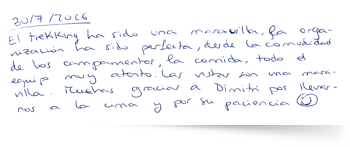 20/7/2026
El trekking ha sido una maravilla, la orga-
nización ha sido perfecta, desde la comodidad
de los campamentos, la comida, todo el
equipo muy atento. Las vistas son una mara-
villa. Muchas gracias a Dimitri por llevar-
nos a la cima y por su paciencia ☺